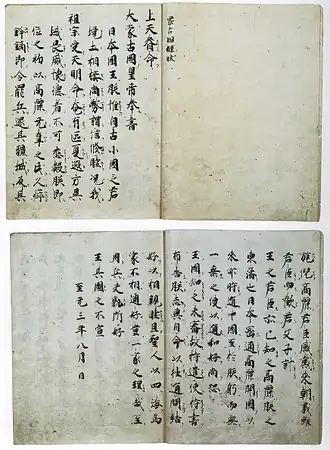 蒙古国牒状
上天眷命
大蒙古國皇帝奉書
日本國王朕惟自古小國之君
境土相接尚務講信修睦況我
祖宗受天明命奄有區夏遐方異
域畏威懷德者不可悉數朕即
位之初以高麗无辜之民久瘁
鋒鏑即令罷兵還其疆域反其
旄倪高麗君臣感戴來朝義雖
君臣歡若父子計
王之君臣亦已知之高麗朕之
東藩也日本密邇高麗開國以
來亦時通中國至於朕躬而無
一乗之使以通和好尚恐
王國知之未審故特遣使持書
布告朕志冀自今以往通問結
好以相親睦且聖人以四海為
家不相通好豈一家之理哉至
用兵夫孰所好
王其圖之不宣
至元三年八月 日